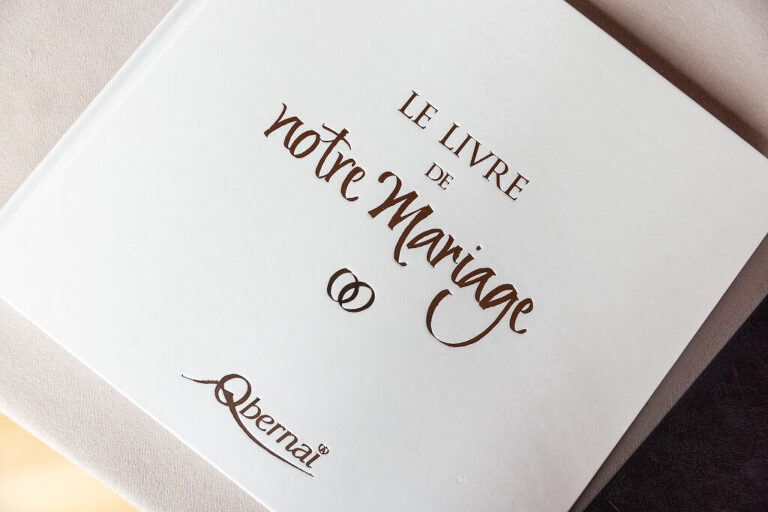 LE LIVRE
DE
notre Mariage
Qbernai